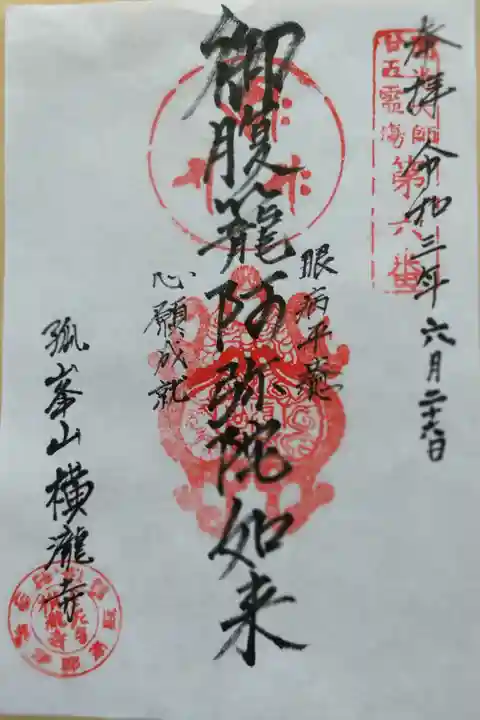 奉拝 令和三年六月二十六日
廿五霊場
第六番
眼病平癒
御腹籠阿弥陀如来
心願成就
孤峯山横瀧寺